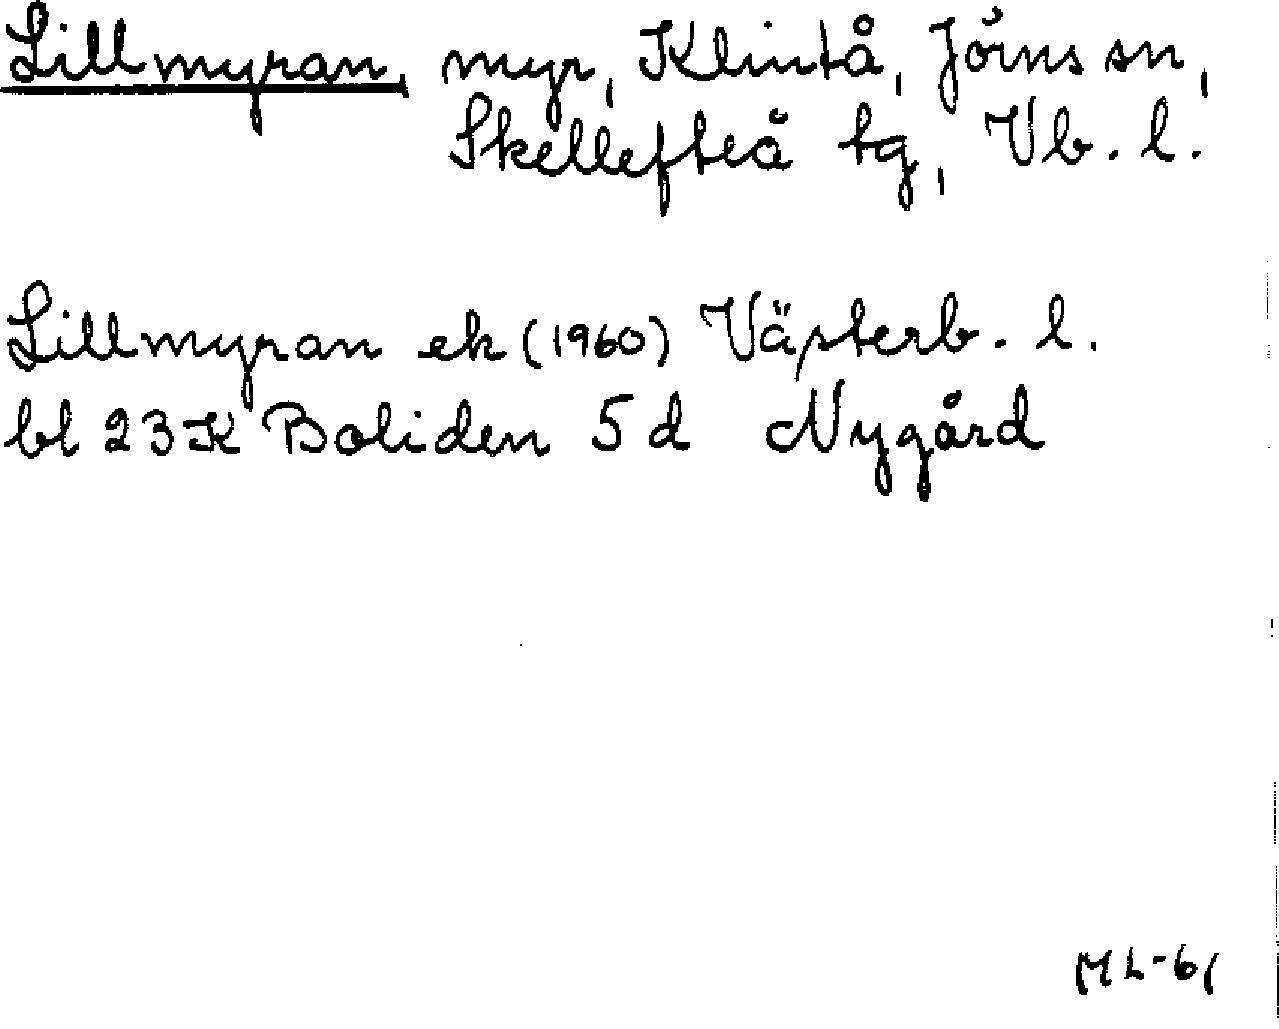 Lillmyran, myr, Klintå, Jörns sn,
Skellefteå tg, Vb. l.
Lillmyran ek (1960) Västerb. l.
bl 23K Boliden 5d Nygård
ML-61